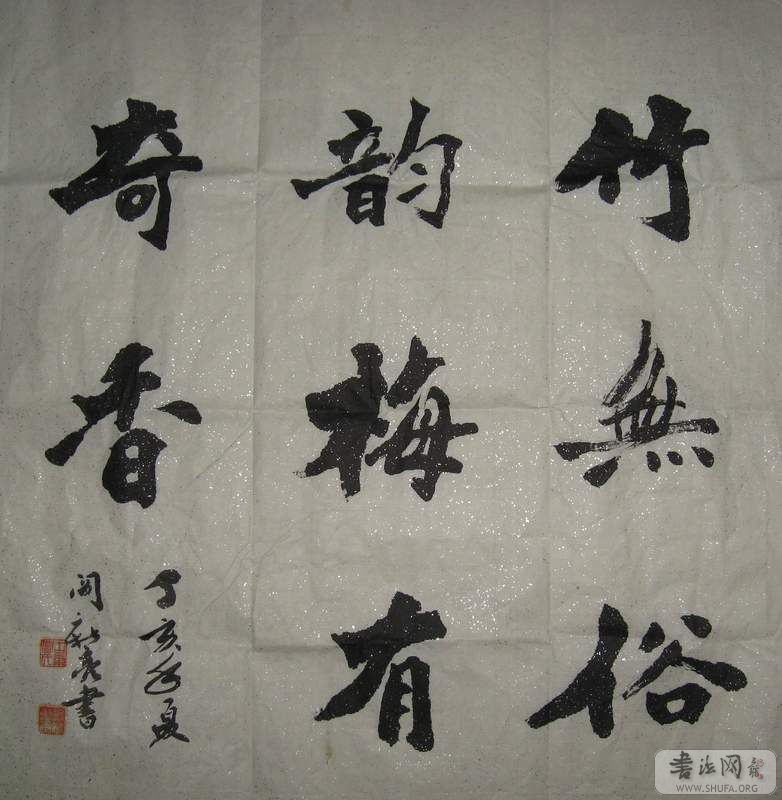 竹無俗
韵梅有
奇香
丁亥年夏
書
書法网
WWW.SHUFA.ORG